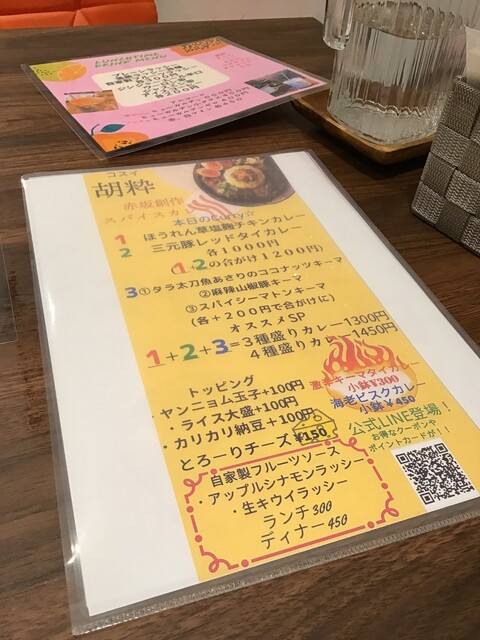 LUNCHTIME
DRINK MENU
各300円
コスイ
胡粋
赤坂創作
スパイスカ
本日のCurry☆
1 ほうれん草塩麹チキンカレー
2 三元豚レッドタイカレー
各1000円
(1+2の合がけ1200円)
3①タラ太刀魚あさりのココナッツキーマ
②麻辣山椒豚キーマ
③スパイシーマトンキーマ
(各+200円で合がけに)
オススメSP
1+2+3=3種盛りカレー1300円
4種盛りカレー1450円
激辛キーマタイカレー
小鉢¥300
海老ビスクカレー
小鉢¥450
トッピング
・ヤンニョム玉子+100円
・ライス大盛+100円
・カリカリ納豆+100円
とろーりチーズ ¥150
公式LINE登場!
お得なクーポンや
ポイントカードが!!
自家製フルーツソース
・アップルシナモンラッシー
・生キウイラッシー
ランチ300
ディナー450